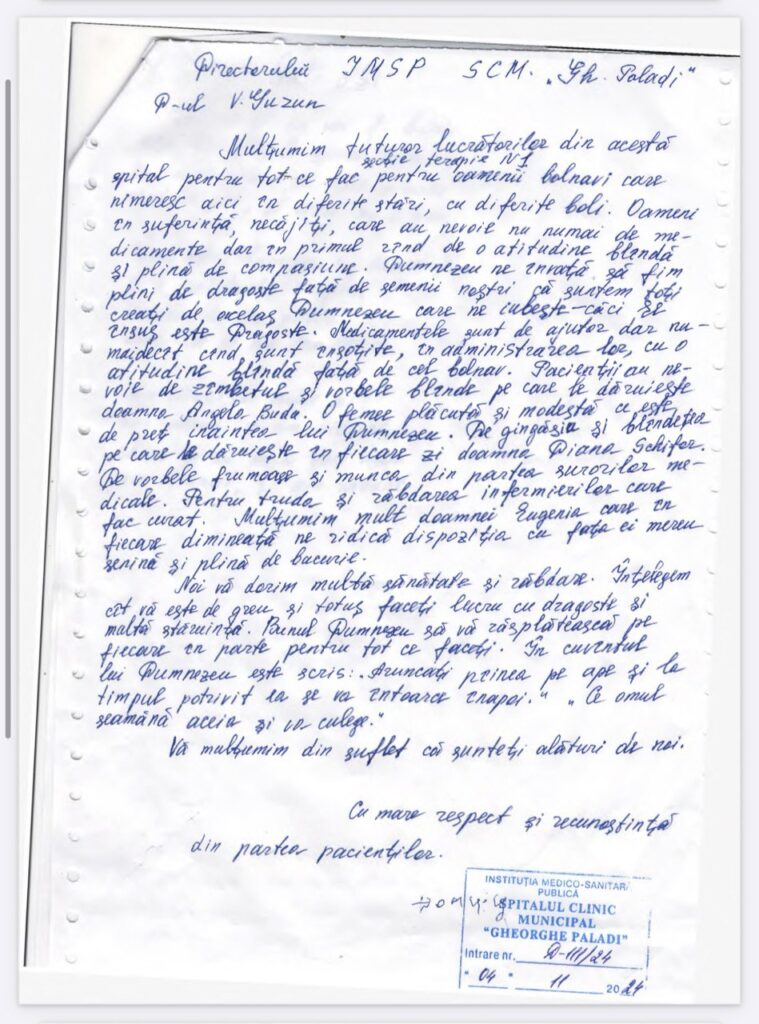 Directorului IMSP SCM. „Gh. Paladi"
D-ul V. Guzun
Mulțumim tuturor lucrătorilor din acestă
secție terapie N1
spital pentru tot ce fac pentru oamenii bolnavi care
nimeresc aici în diferite stări, cu diferite boli. Oameni
în suferință, necăjiți, care au nevoie nu numai de me-
dicamente dar în primul rînd de o atitudine blîndă
și plină de compasiune. Dumnezeu ne învață să fim
plini de dragoste față de semenii noștri că suntem toți
creați de acelaș Dumnezeu care ne iubește - căci El
însuș este Dragoste. Medicamentele sunt de ajutor dar nu-
maidecît cînd sunt însoțite, în administrarea lor, cu o
atitudine blîndă față de cel bolnav. Pacienții au ne-
voie de zîmbetul și vorbele blînde pe care le dăruiește
doamna Angela Buda. O femee plăcută și modestă ce este
de preț înaintea lui Dumnezeu. De gingășia și blîndețea
pe care le dăruiește în fiecare zi doamna Diana Schifer.
De vorbele frumoase și munca din partea surorilor me-
dicale. Pentru truda și răbdarea infermierilor care
fac curat. Mulțumim mult doamnei Eugenia care în
fiecare dimineață ne ridică dispoziția cu fața ei mereu
senină și plină de bucurie.
Noi vă dorim multă sănătate și răbdare. Înțelegem
cît vă este de greu și totuș faceți lucru cu dragoste și
multă stăruință. Bunul Dumnezeu să vă răsplătească pe
fiecare în parte pentru tot ce faceți. În cuvîntul
lui Dumnezeu este scris: „Aruncați pîinea pe ape și la
timpul potrivit ea se va întoarce înapoi." „Ce omul
seamănă aceia și va culege."
Vă mulțumim din suflet că sunteți alături de noi.
Cu mare respect și recunoștință
din partea pacienților.
INSTITUȚIA MEDICO-SANITAR/
PUBLICĂ
SPITALUL CLINIC
MUNICIPAL
"GHEORGHE PALADI"
Intrare nr. D-111/24
"04" 11 2024